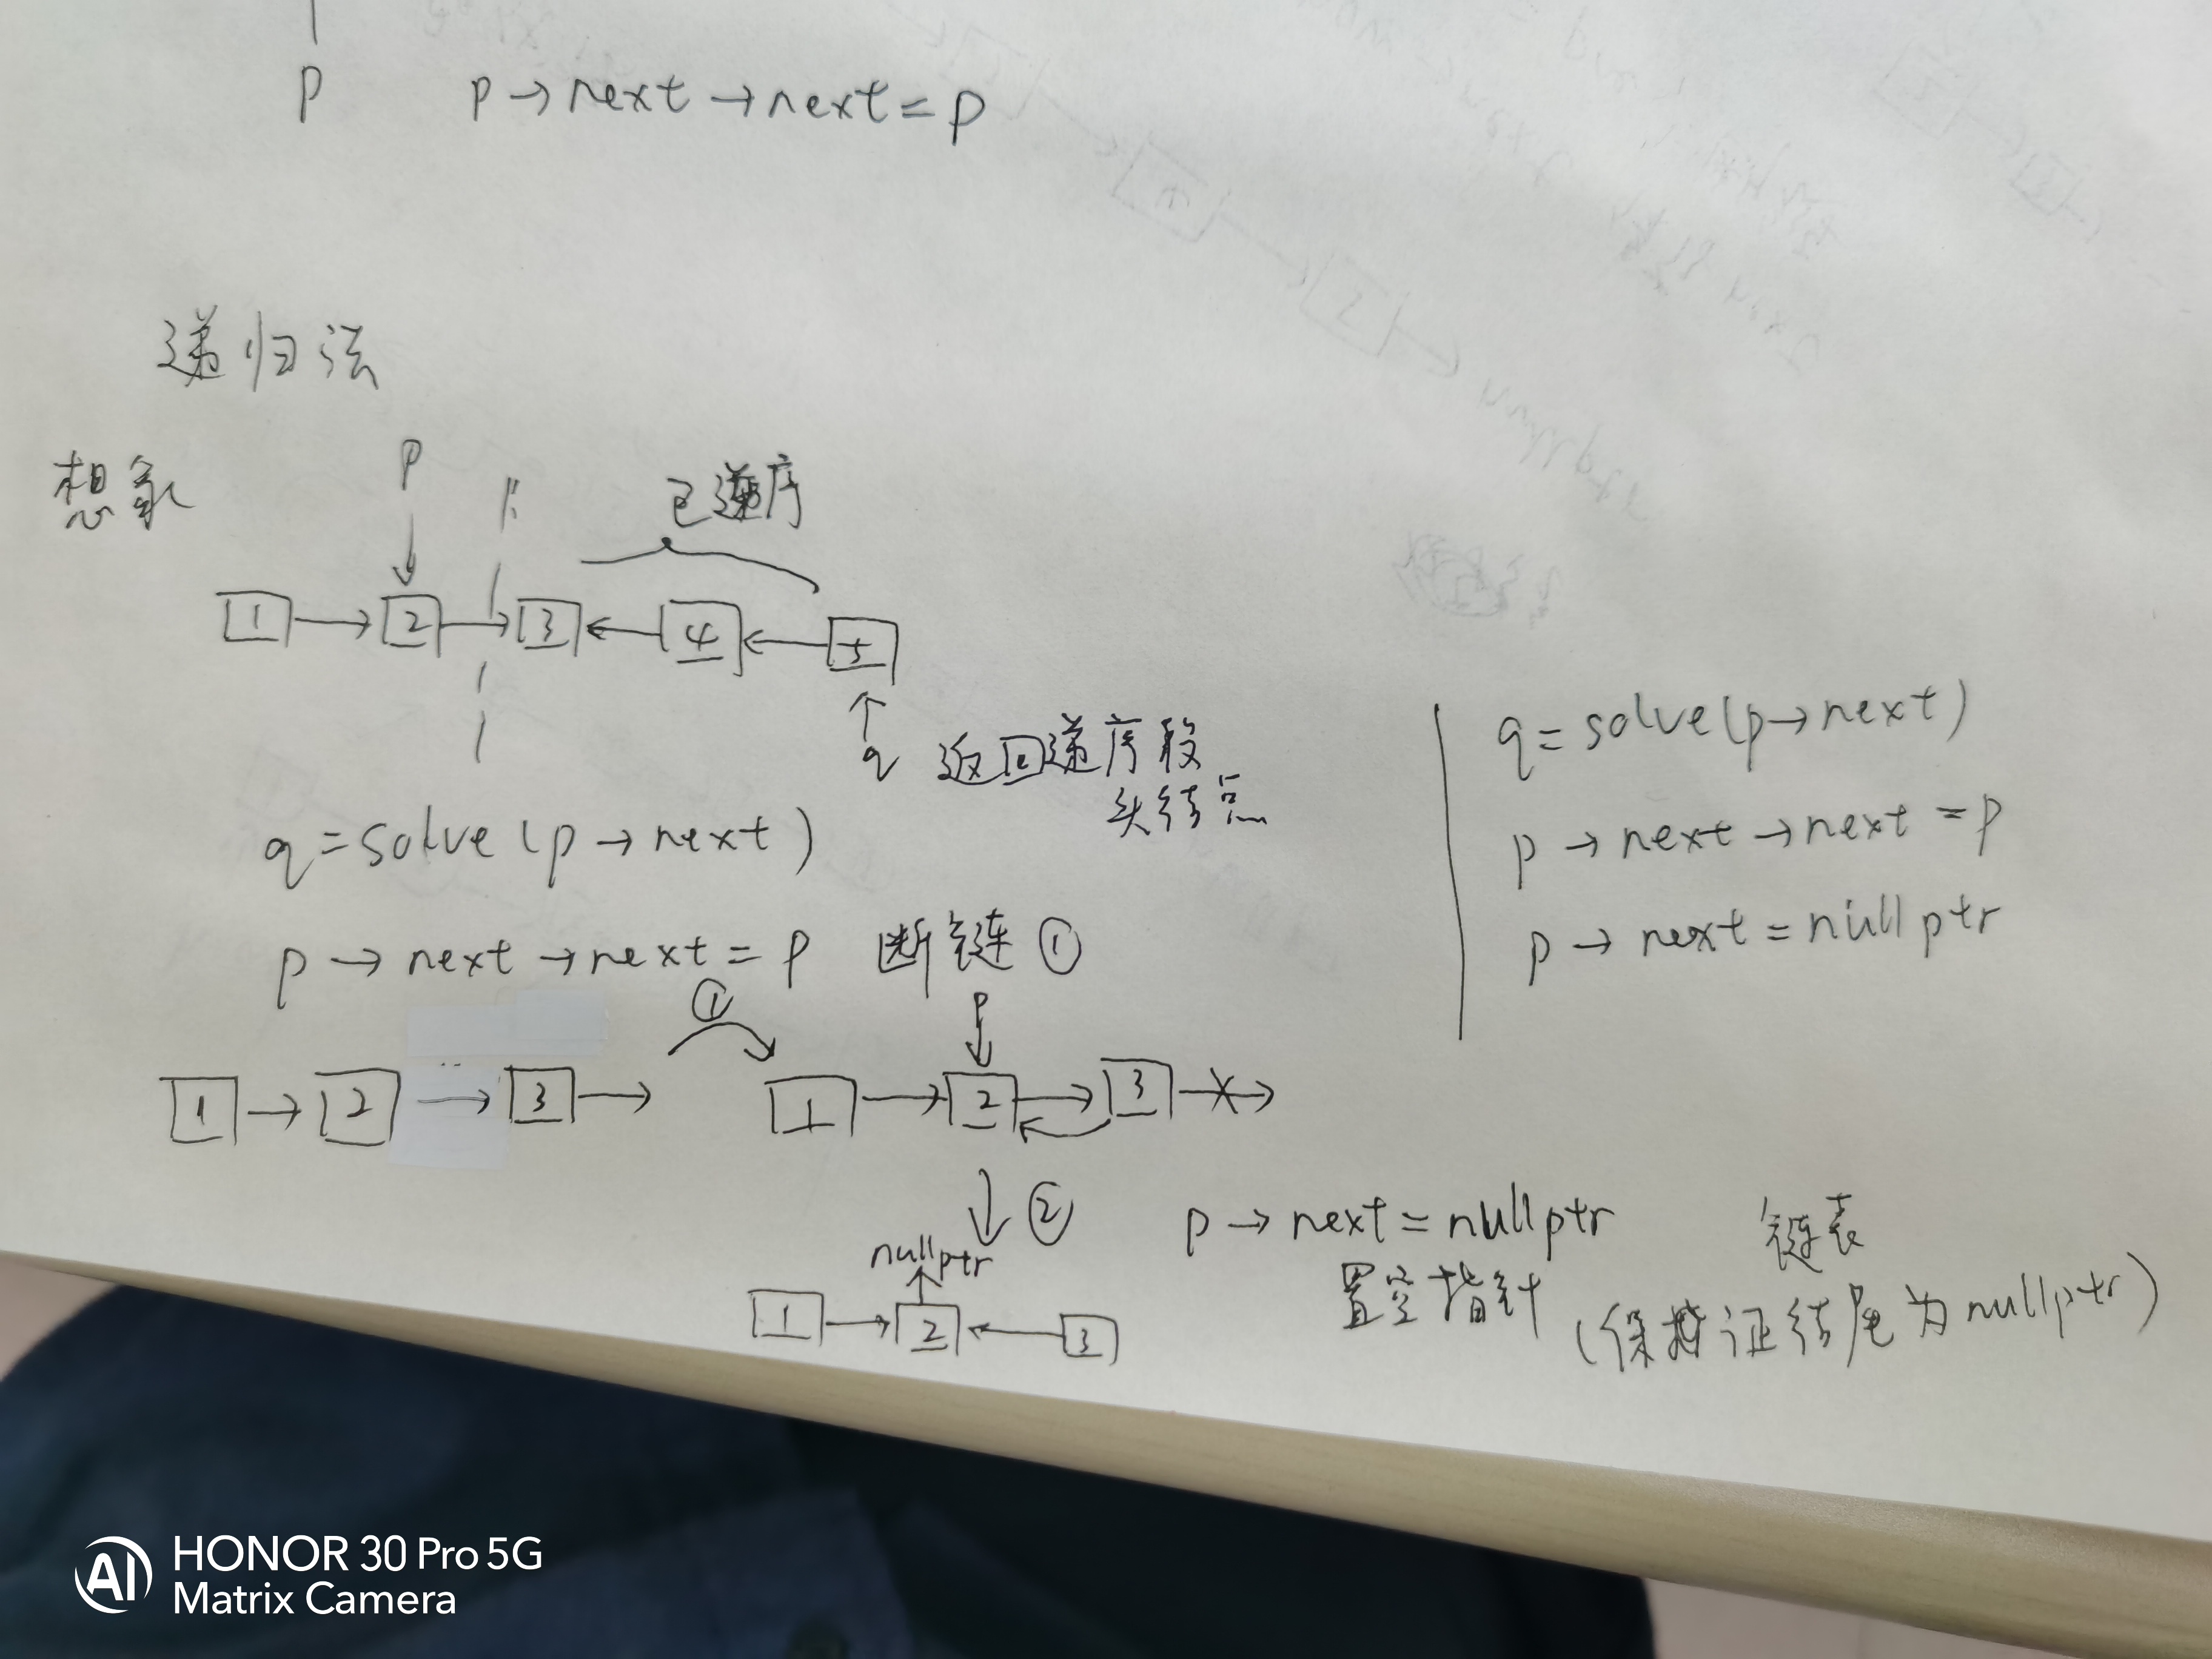 p p→next→next=p
递归法
想象 p 已逆序
1 → 2 → 3 ← 4 ← 5
q 返回逆序段
头结点
q=solve(p→next)
p→next→next=p 断链①
① p
1 → 2 → 3 → 1 → 2 → 3 →
② p→next=nullptr 链表
nullptr 置空指针 (保证结尾为nullptr)
1 → 2 ← 3
q=solve(p→next)
p→next→next=p
p→next=nullptr
HONOR 30 Pro 5G
Matrix Camera
AI